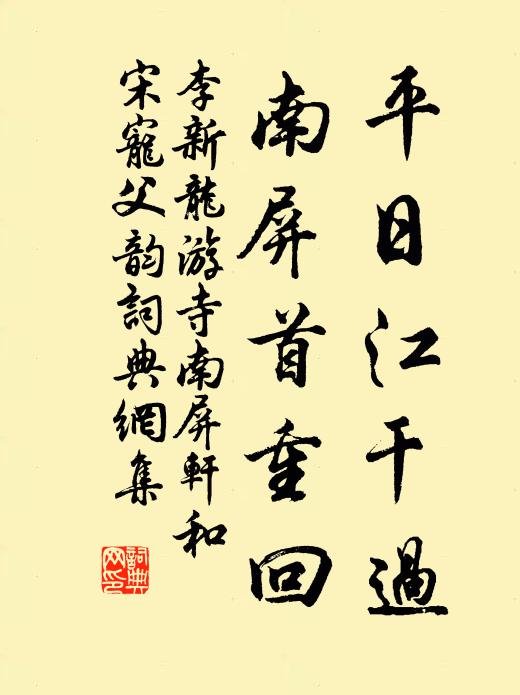 平日江干過
南屏首重回
李新龍游寺南屏軒和
宋寵父韵詞典網集
詞典网印